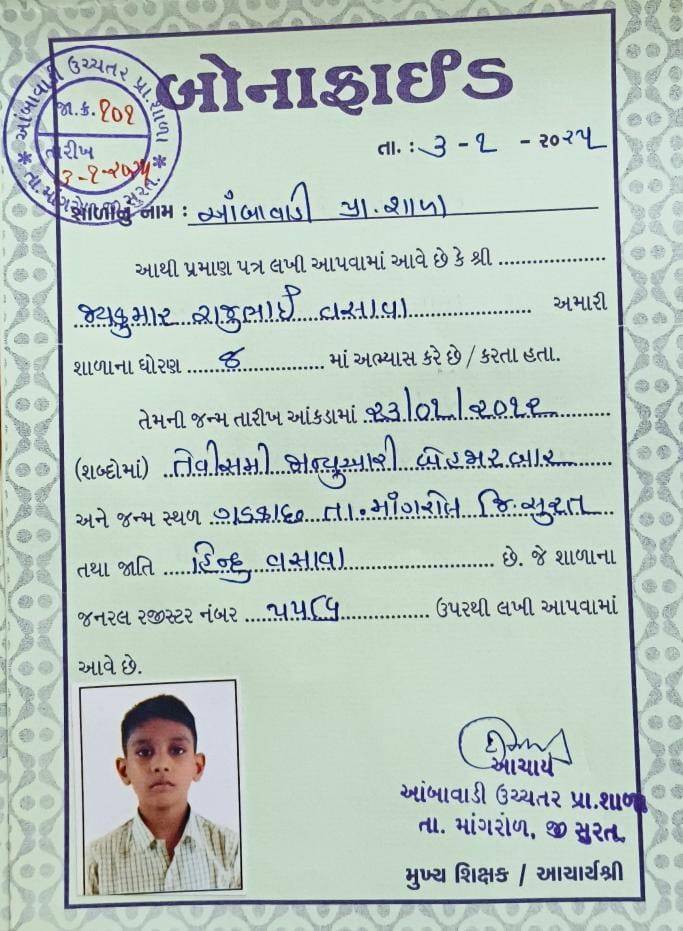 બોનાફાઈડ
આંબાવાડી ઉચ્ચતર પ્રા.શાળા
જા.ક્ર. ૧૦૧
તારીખ
૩-૧-૨૦૨૫
તા.માંગરોળ, જી સુરત.
તા. : ૩ - ૧ - ૨૦૨૫
શાળાનું નામ : આંબાવાડી પ્રા.શાળા
આથી પ્રમાણ પત્ર લખી આપવામાં આવે છે કે શ્રી ....................
જયકુમાર રાજુભાઈ વસાવા .................... અમારી
શાળાના ધોરણ ...... ૭ ............ માં અભ્યાસ કરે છે / કરતા હતા.
તેમની જન્મ તારીખ આંકડામાં ૨૩/૦૧/૨૦૧૨
(શબ્દોમાં) તેવીસમી જાન્યુઆરી બેહજાર બાર
અને જન્મ સ્થળ ગડકાછ તા.માંગરોલ જિ.સુરત
તથા જાતિ .... હિન્દુ વસાવા .................... છે. જે શાળાના
જનરલ રજીસ્ટર નંબર .... ૫૫૮૫ ............ ઉપરથી લખી આપવામાં
આવે છે.
આચાર્ય
આંબાવાડી ઉચ્ચતર પ્રા.શાળા
તા. માંગરોળ, જી સુરત.
મુખ્ય શિક્ષક / આચાર્યશ્રી